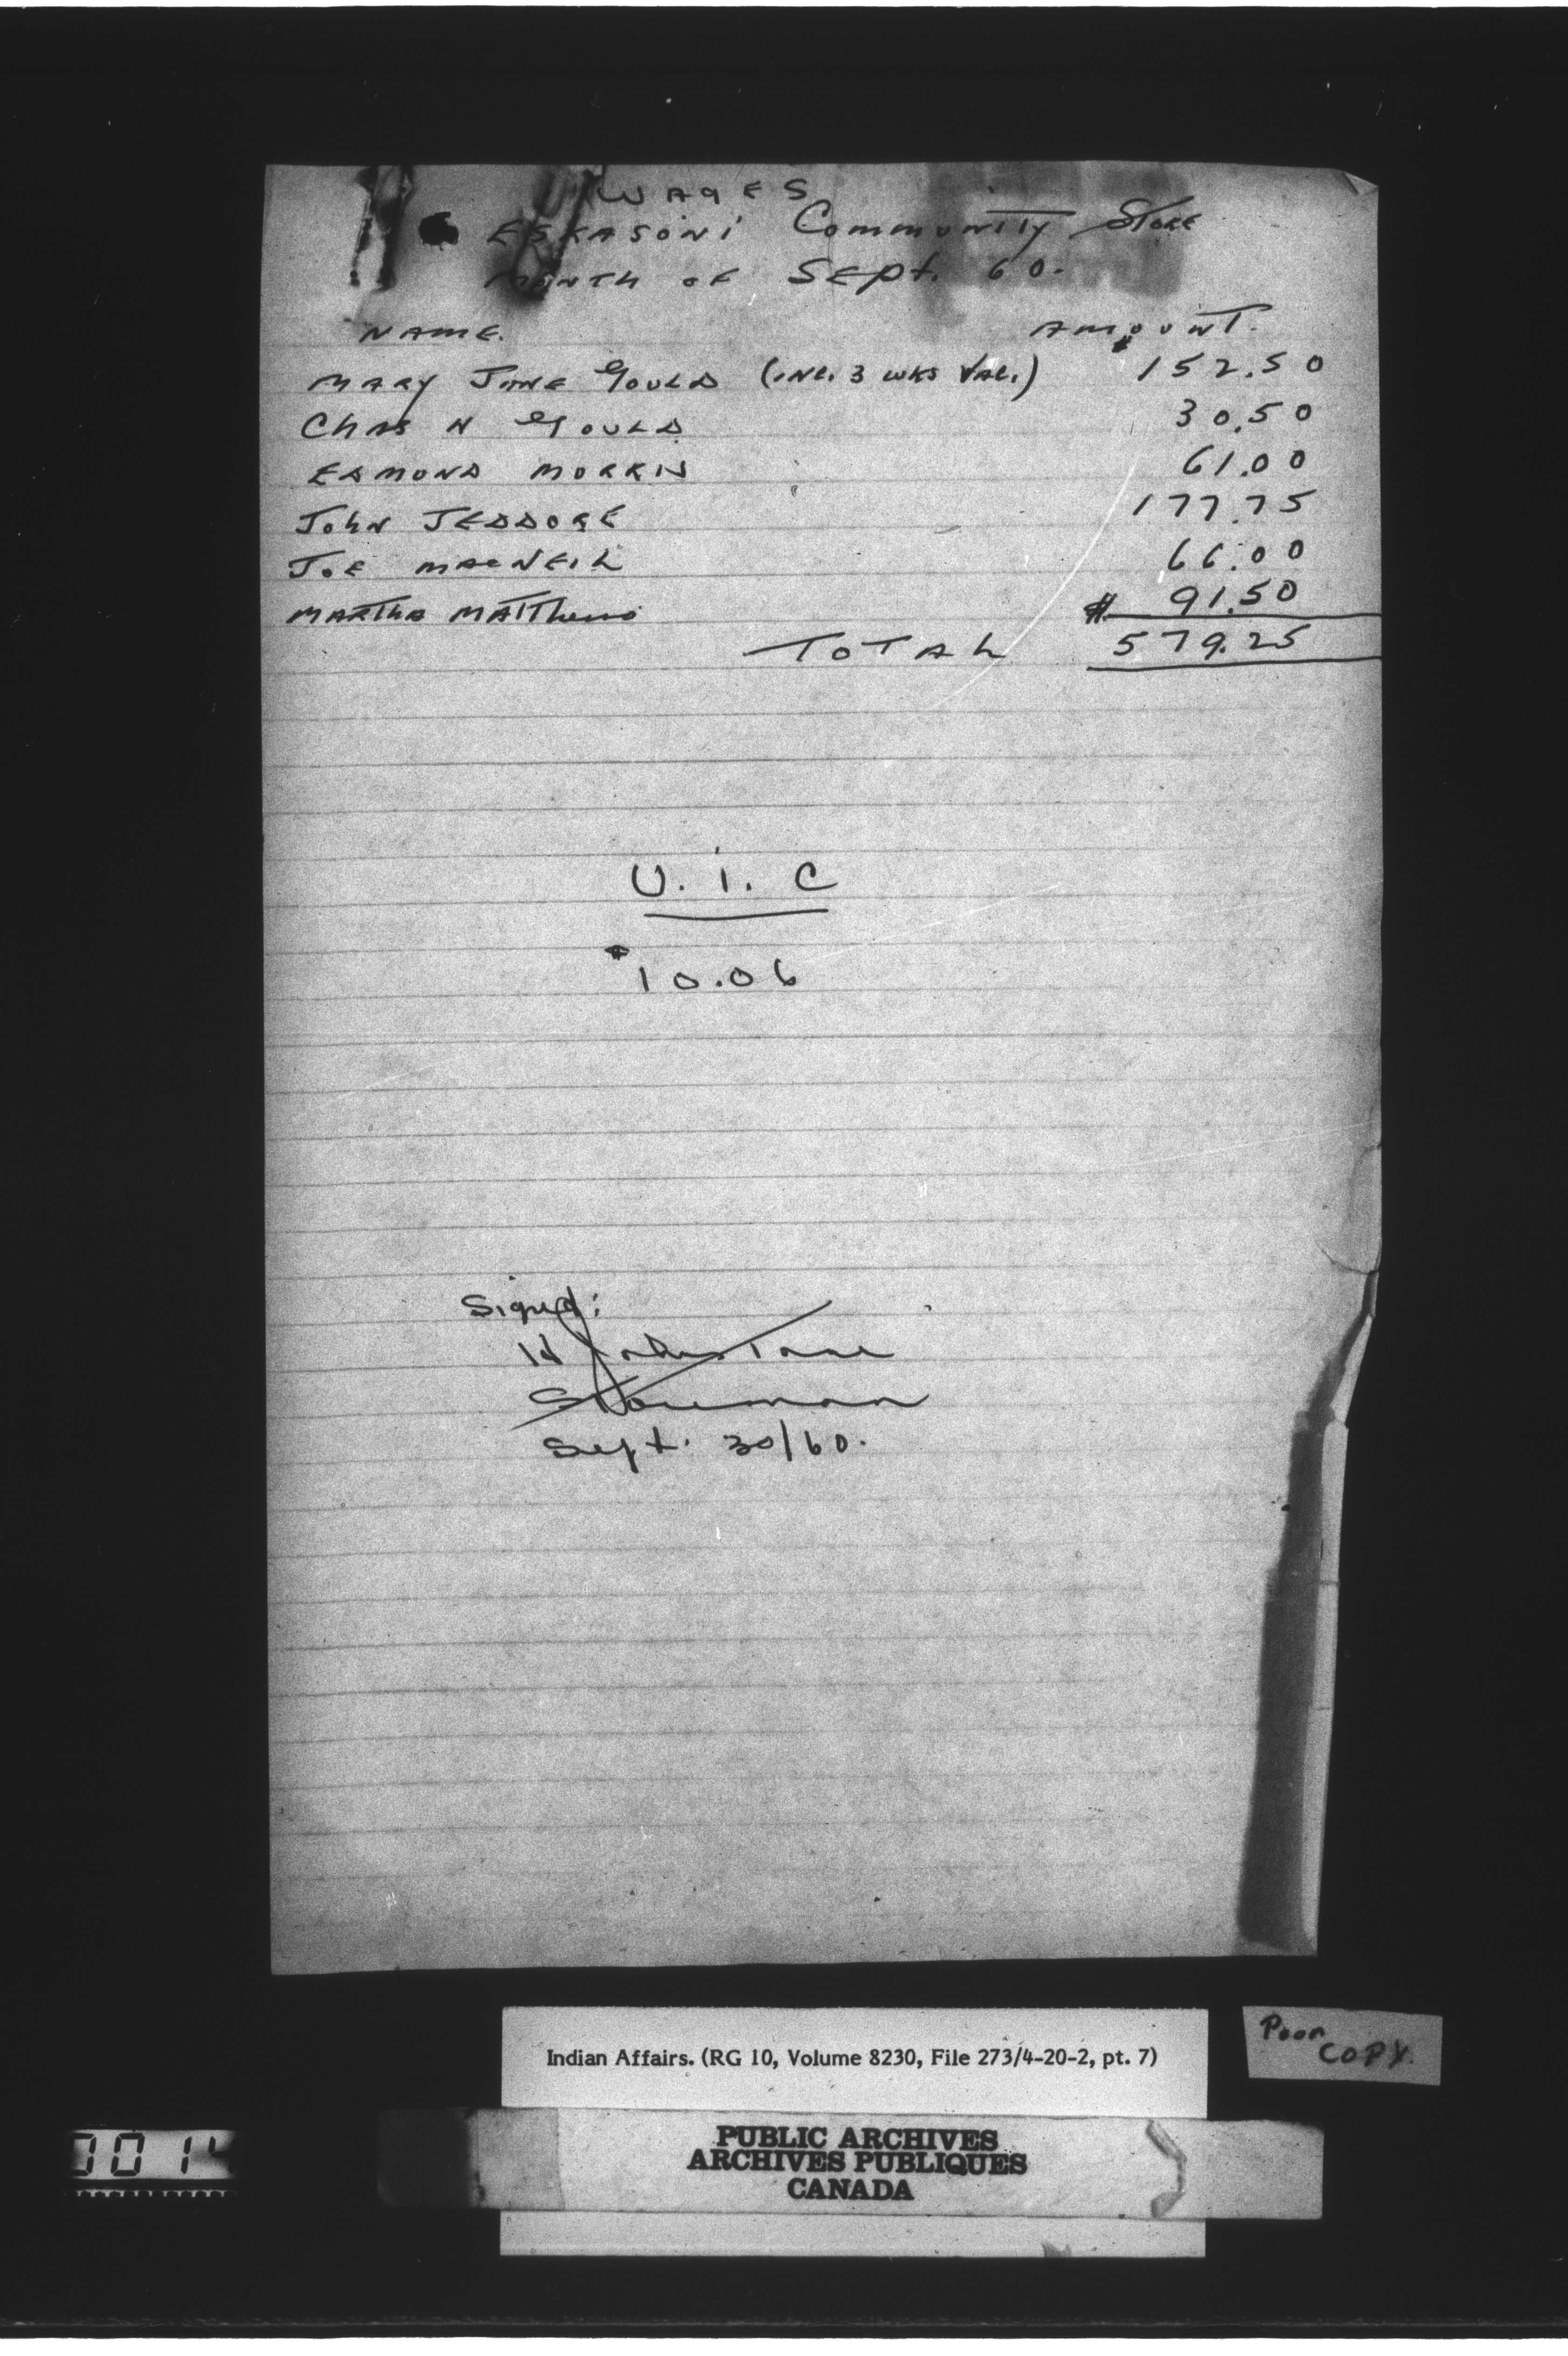 WAGES
ESKASONI Community Store
MONTH OF SEPT. 60.
NAME. AMOUNT.
MARY JANE GOULD (INC. 3 WKS VAC.) $152.50
CHAS N GOULD 30.50
EDMOND MORRIS 61.00
JOHN JEDDORE 177.75
JOE MACNEIL 66.00
MARTHA MATTHEWS $ 91.50
TOTAL 579.25
U.i.C
$10.06
Signed:
H Johnstone
Storeman
Sept. 30/60.
Indian Affairs. (RG 10, Volume 8230, File 273/4-20-2, pt. 7)
Poor
COPY.
PUBLIC ARCHIVES
ARCHIVES PUBLIQUES
CANADA
0014